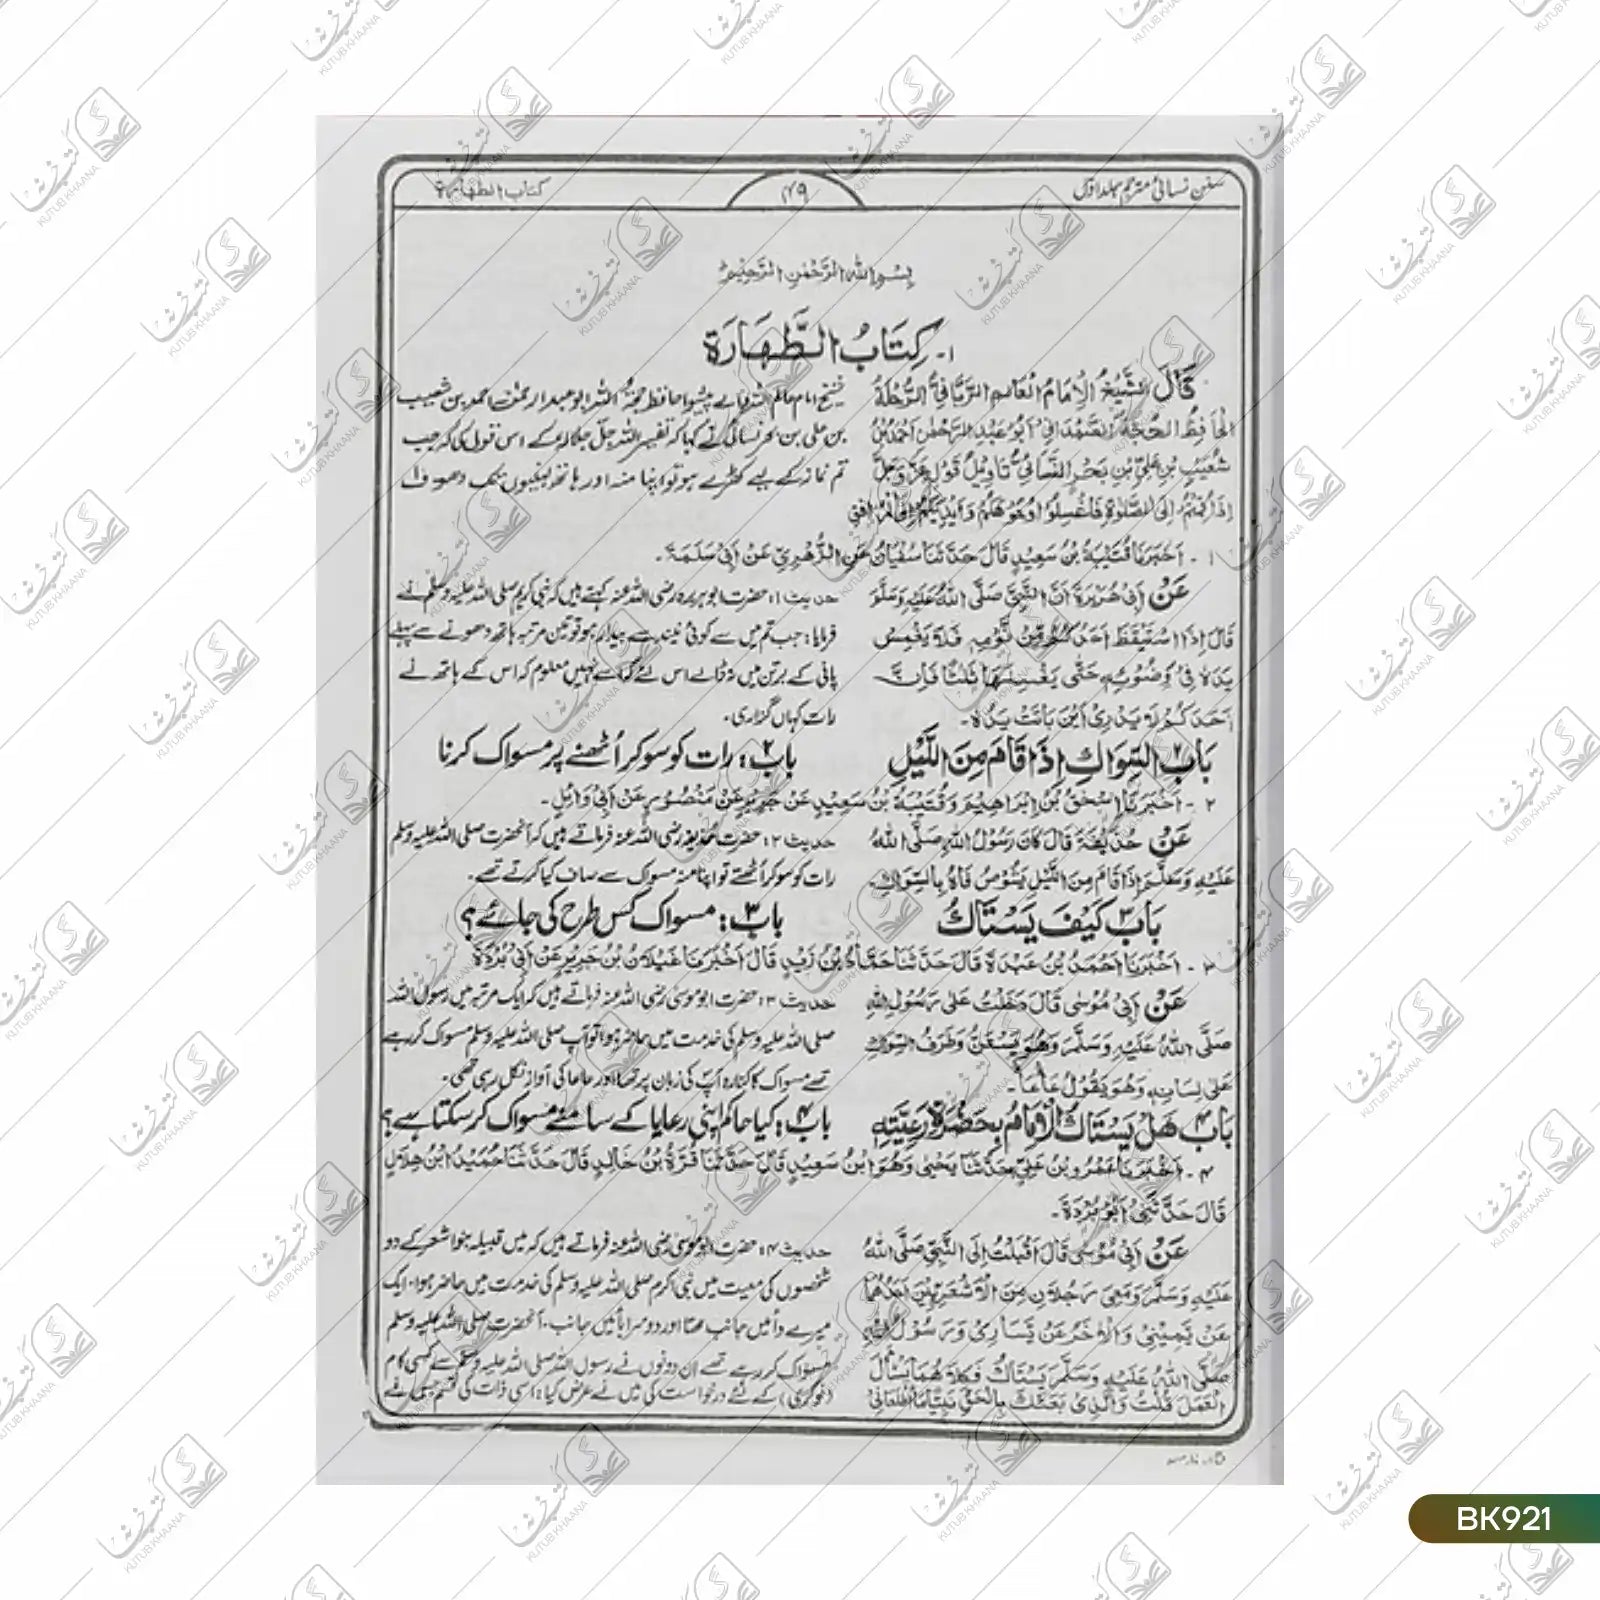 سنن نسائی مترجم جلد اول
۴۹
کتاب الطہارۃ
بِسْمِ اللهِ الرَّحْمٰنِ الرَّحِيْمِ
۱- كِتَابُ الطَّهَارَة
قَالَ الشَّيْخُ الْاِمَامُ الْعَالِمُ الرَّبَّانِيُّ الرُّحْلَةُ
الْحَافِظُ الْحُجَّةُ الصَّمَدَانِيُّ اَبُوْ عَبْدِ الرَّحْمٰنِ اَحْمَدُ بْنُ
شُعَيْبِ بْنِ عَلِيِّ بْنِ بَحْرٍ النَّسَائِيُّ تَاوِيْلُ قَوْلِهٖ عَزَّ وَجَلَّ
اِذَا قُمْتُمْ اِلَى الصَّلٰوةِ فَاغْسِلُوْا وُجُوْهَكُمْ وَاَيْدِيَكُمْ اِلَى الْمَرَافِقِ
شیخ امام عالم ربانی پیشوا حافظ حجۃ اللہ ابو عبدالرحمٰن احمد بن شعیب
بن علی بن بحر نسائی نے کہا کہ تفسیر اللہ جل جلالہ کے اس قول کی کہ جب
تم نماز کے لیے کھڑے ہو تو اپنا منہ اور ہاتھ کہنیوں تک دھوؤ
۱ - اَخْبَرَنَا قُتَيْبَةُ بْنُ سَعِيْدٍ قَالَ حَدَّثَنَا سُفْيَانُ عَنِ الزُّهْرِيِّ عَنْ اَبِيْ سَلَمَةَ -
عَنْ اَبِيْ هُرَيْرَةَ اَنَّ النَّبِيَّ صَلَّى اللهُ عَلَيْهِ وَسَلَّمَ
قَالَ اِذَا اسْتَيْقَظَ اَحَدُكُمْ مِنْ نَّوْمِهٖ فَلَا يَغْمِسْ
يَدَهٗ فِيْ وَضُوْئِهٖ حَتّٰى يَغْسِلَهَا ثَلٰثًا فَاِنَّ
اَحَدَكُمْ لَا يَدْرِيْ اَيْنَ بَاتَتْ يَدُهٗ -
حدیث ۱: حضرت ابوہریرہ رضی اللہ عنہ کہتے ہیں کہ نبی کریم صلی اللہ علیہ وسلم نے
فرمایا: جب تم میں سے کوئی نیند سے بیدار ہو تو تین مرتبہ ہاتھ دھونے سے پہلے
پانی کے برتن میں نہ ڈالے اس لئے کہ اسے نہیں معلوم کہ اس کے ہاتھ نے
رات کہاں گزاری۔
بَابُ ۲ السِّوَاكِ اِذَا قَامَ مِنَ اللَّيْلِ
باب ۲: رات کو سو کر اُٹھنے پر مسواک کرنا
۲ - اَخْبَرَنَا اِسْحٰقُ بْنُ اِبْرَاهِيْمَ وَقُتَيْبَةُ بْنُ سَعِيْدٍ عَنْ جَرِيْرٍ عَنْ مَنْصُوْرٍ عَنْ اَبِيْ وَائِلٍ -
عَنْ حُذَيْفَةَ قَالَ كَانَ رَسُوْلُ اللهِ صَلَّى اللهُ
عَلَيْهِ وَسَلَّمَ اِذَا قَامَ مِنَ اللَّيْلِ يَشُوْصُ فَاهُ بِالسِّوَاكِ -
حدیث ۲: حضرت حذیفہ رضی اللہ عنہ فرماتے ہیں کہ آنحضرت صلی اللہ علیہ وسلم
رات کو سو کر اُٹھتے تو اپنا منہ مسواک سے صاف کیا کرتے تھے۔
بَابُ ۳ كَيْفَ يَسْتَاكُ
باب ۳: مسواک کس طرح کی جائے؟
۳ - اَخْبَرَنَا اَحْمَدُ بْنُ عَبْدَةَ قَالَ حَدَّثَنَا حَمَّادُ بْنُ زَيْدٍ قَالَ اَخْبَرَنَا غَيْلَانُ بْنُ جَرِيْرٍ عَنْ اَبِيْ بُرْدَةَ
عَنْ اَبِيْ مُوْسٰى قَالَ دَخَلْتُ عَلٰى رَسُوْلِ اللهِ
صَلَّى اللهُ عَلَيْهِ وَسَلَّمَ وَهُوَ يَسْتَنُّ وَطَرَفُ السِّوَاكِ
عَلٰى لِسَانِهٖ وَهُوَ يَقُوْلُ عَأْعَأْ -
حدیث ۳: حضرت ابو موسیٰ رضی اللہ عنہ فرماتے ہیں کہ ایک مرتبہ میں رسول اللہ
صلی اللہ علیہ وسلم کی خدمت میں حاضر ہوا تو آپ صلی اللہ علیہ وسلم مسواک کر رہے
تھے مسواک کا کنارہ آپ کی زبان پر تھا اور عاعا کی آواز نکل رہی تھی۔
بَابُ ۴ هَلْ يَسْتَاكُ الْاِمَامُ بِحَضْرَةِ رَعِيَّتِهٖ
باب ۴: کیا حاکم اپنی رعایا کے سامنے مسواک کر سکتا ہے؟
۴ - اَخْبَرَنَا عَمْرُو بْنُ عَلِيٍّ حَدَّثَنَا يَحْيٰى وَهُوَ ابْنُ سَعِيْدٍ قَالَ حَدَّثَنَا قُرَّةُ بْنُ خَالِدٍ قَالَ حَدَّثَنَا حُمَيْدُ ابْنُ هِلَالٍ
قَالَ حَدَّثَنِيْ اَبُوْ بُرْدَةَ -
عَنْ اَبِيْ مُوْسٰى قَالَ اَقْبَلْتُ اِلَى النَّبِيِّ صَلَّى اللهُ
عَلَيْهِ وَسَلَّمَ وَمَعِيَ رَجُلَانِ مِنَ الْاَشْعَرِيِّيْنَ اَحَدُهُمَا
عَنْ يَّمِيْنِيْ وَالْاٰخَرُ عَنْ يَّسَارِيْ وَرَسُوْلُ اللهِ
صَلَّى اللهُ عَلَيْهِ وَسَلَّمَ يَسْتَاكُ فَكِلَاهُمَا يَسْأَلُ
الْعَمَلَ قُلْتُ وَالَّذِيْ بَعَثَكَ بِالْحَقِّ نَبِيًّا مَا اَطْلَعَانِيْ
حدیث ۴: حضرت ابو موسیٰ رضی اللہ عنہ فرماتے ہیں کہ میں قبیلہ بنو اشعر کے دو
شخصوں کی معیت میں نبی اکرم صلی اللہ علیہ وسلم کی خدمت میں حاضر ہوا۔ ایک
میرے دائیں جانب تھا اور دوسرا بائیں جانب۔ آنحضرت صلی اللہ علیہ وسلم
مسواک کر رہے تھے ان دونوں نے رسول اللہ صلی اللہ علیہ وسلم سے کسی کام
(نوکری) کے لئے درخواست کی میں نے عرض کیا: اس ذات کی قسم جس نے
BK921
کتب خانہ
KUTUB KHAANA